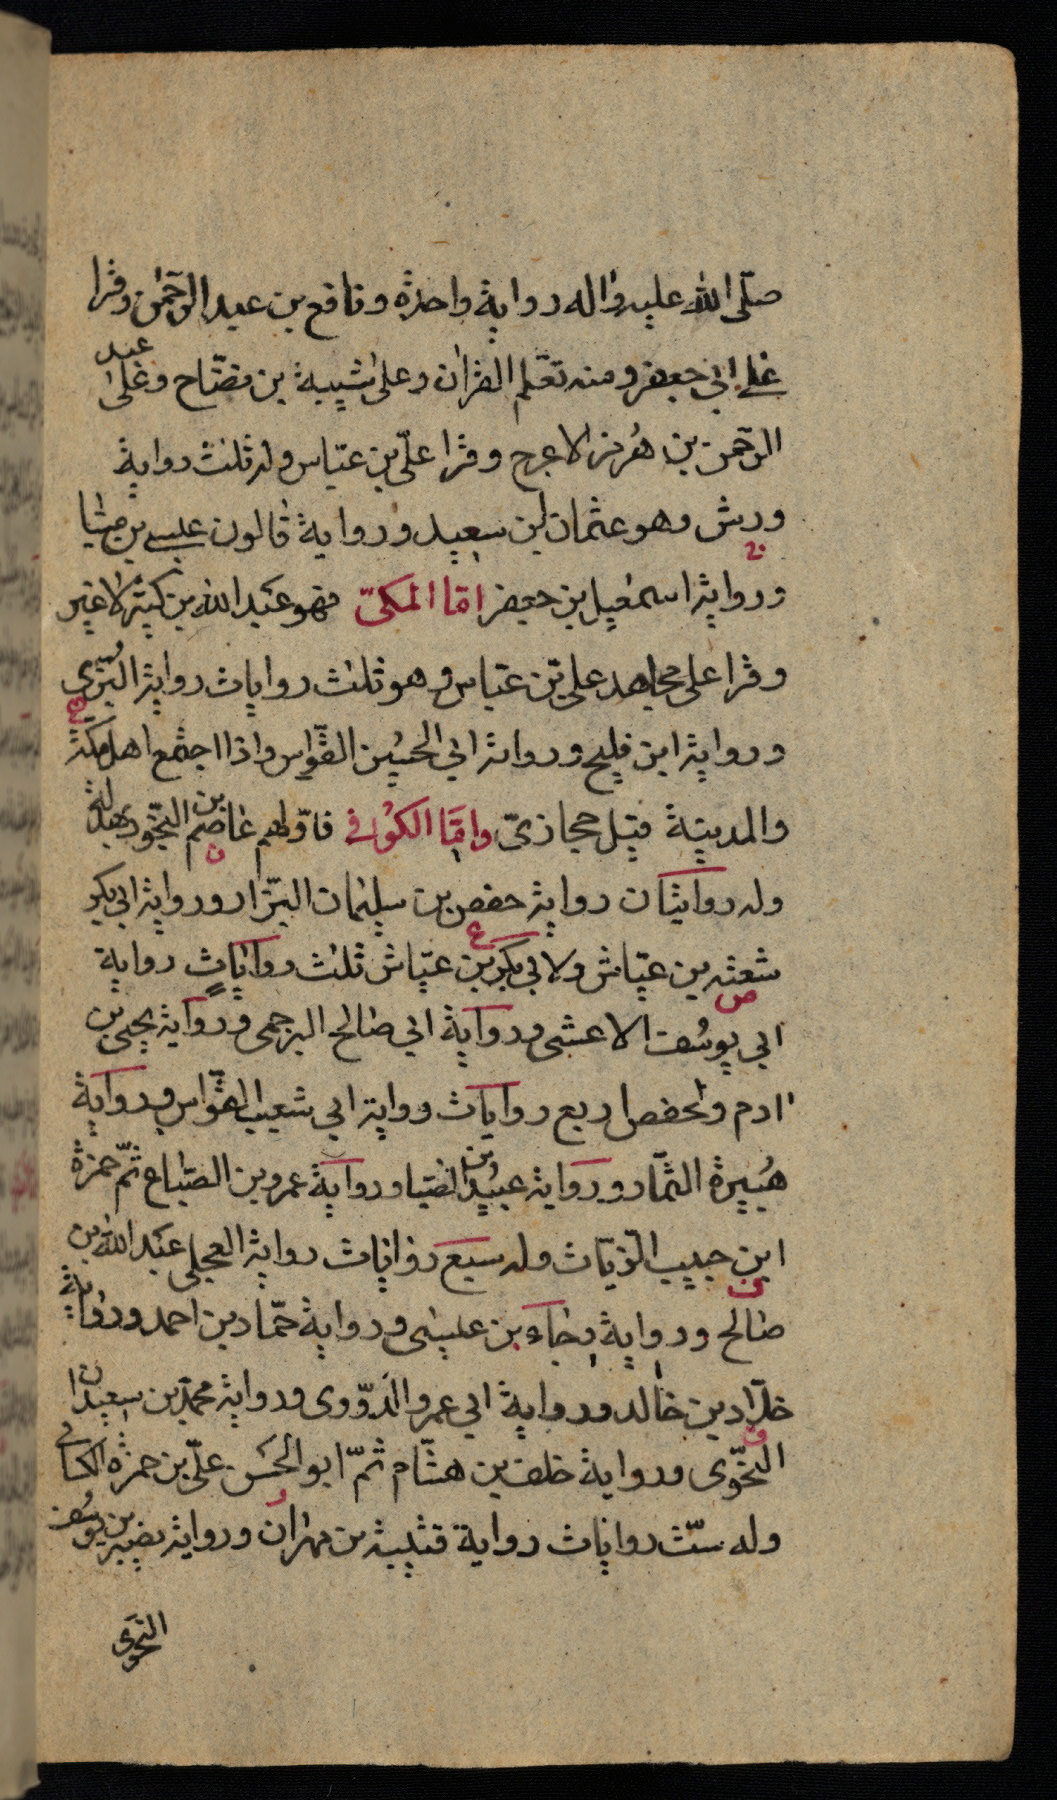 صلّى الله عليه واله رواية واحدة ونافع بن عبد الرّحمٰن وقرا
على ابي جعفر ومنه تعلّم القرآن وعلى شيبة بن نصّاح وعلى عبد
الرّحمن بن هُرمز الاعرج وقرا على بن عبّاس وله ثلث رواية
ورش وهو عثمان بن سعيد ورواية قالون عيسى بن مينا
ورواية اسمعيل بن جعفر امّا المكىّ فهو عبد الله بن كثير لا غير
وقرا على مجاهد على بن عبّاس وهو ثلث روايات رواية البزّى
ورواية ابن فليح ورواية ابي الحسين القوّاس واذا اجتمع اهل مكّة
والمدينة قيل حجازىّ وامّا الكوفى فاوّلهم عاصم بن النجّود بهدلة
وله روايتان رواية حفص بن سليمان البزّاز ورواية ابى بكر
شعبة بن عيّاش ولابي بكر بن عيّاش ثلث روايات رواية
ابي يوسف الاعشى ورواية ابي صالح البرجمى ورواية يحيى بن
ادم ولحفص اربع روايات رواية ابي شعيب القوّاس ورواية
هُبيرة التمّار ورواية عبيد بن الصبّاح ورواية عمرو بن الصبّاح ثمّ حمزة
ابن حبيب الزيّات وله سبع روايات رواية العجلى عبد الله بن
صالح ورواية رجاء بن عيسى ورواية حمّاد بن احمد ورواية
خلّاد بن خالد ورواية ابي عمر والدّورى ورواية محمّد بن سعدان
النحّوى ورواية خلف بن هشام ثمّ ابو الحسن علىّ بن حمزة الكسائى
وله ستّ روايات رواية قتيبة بن مهران ورواية نصير بن يوسف
النحوى